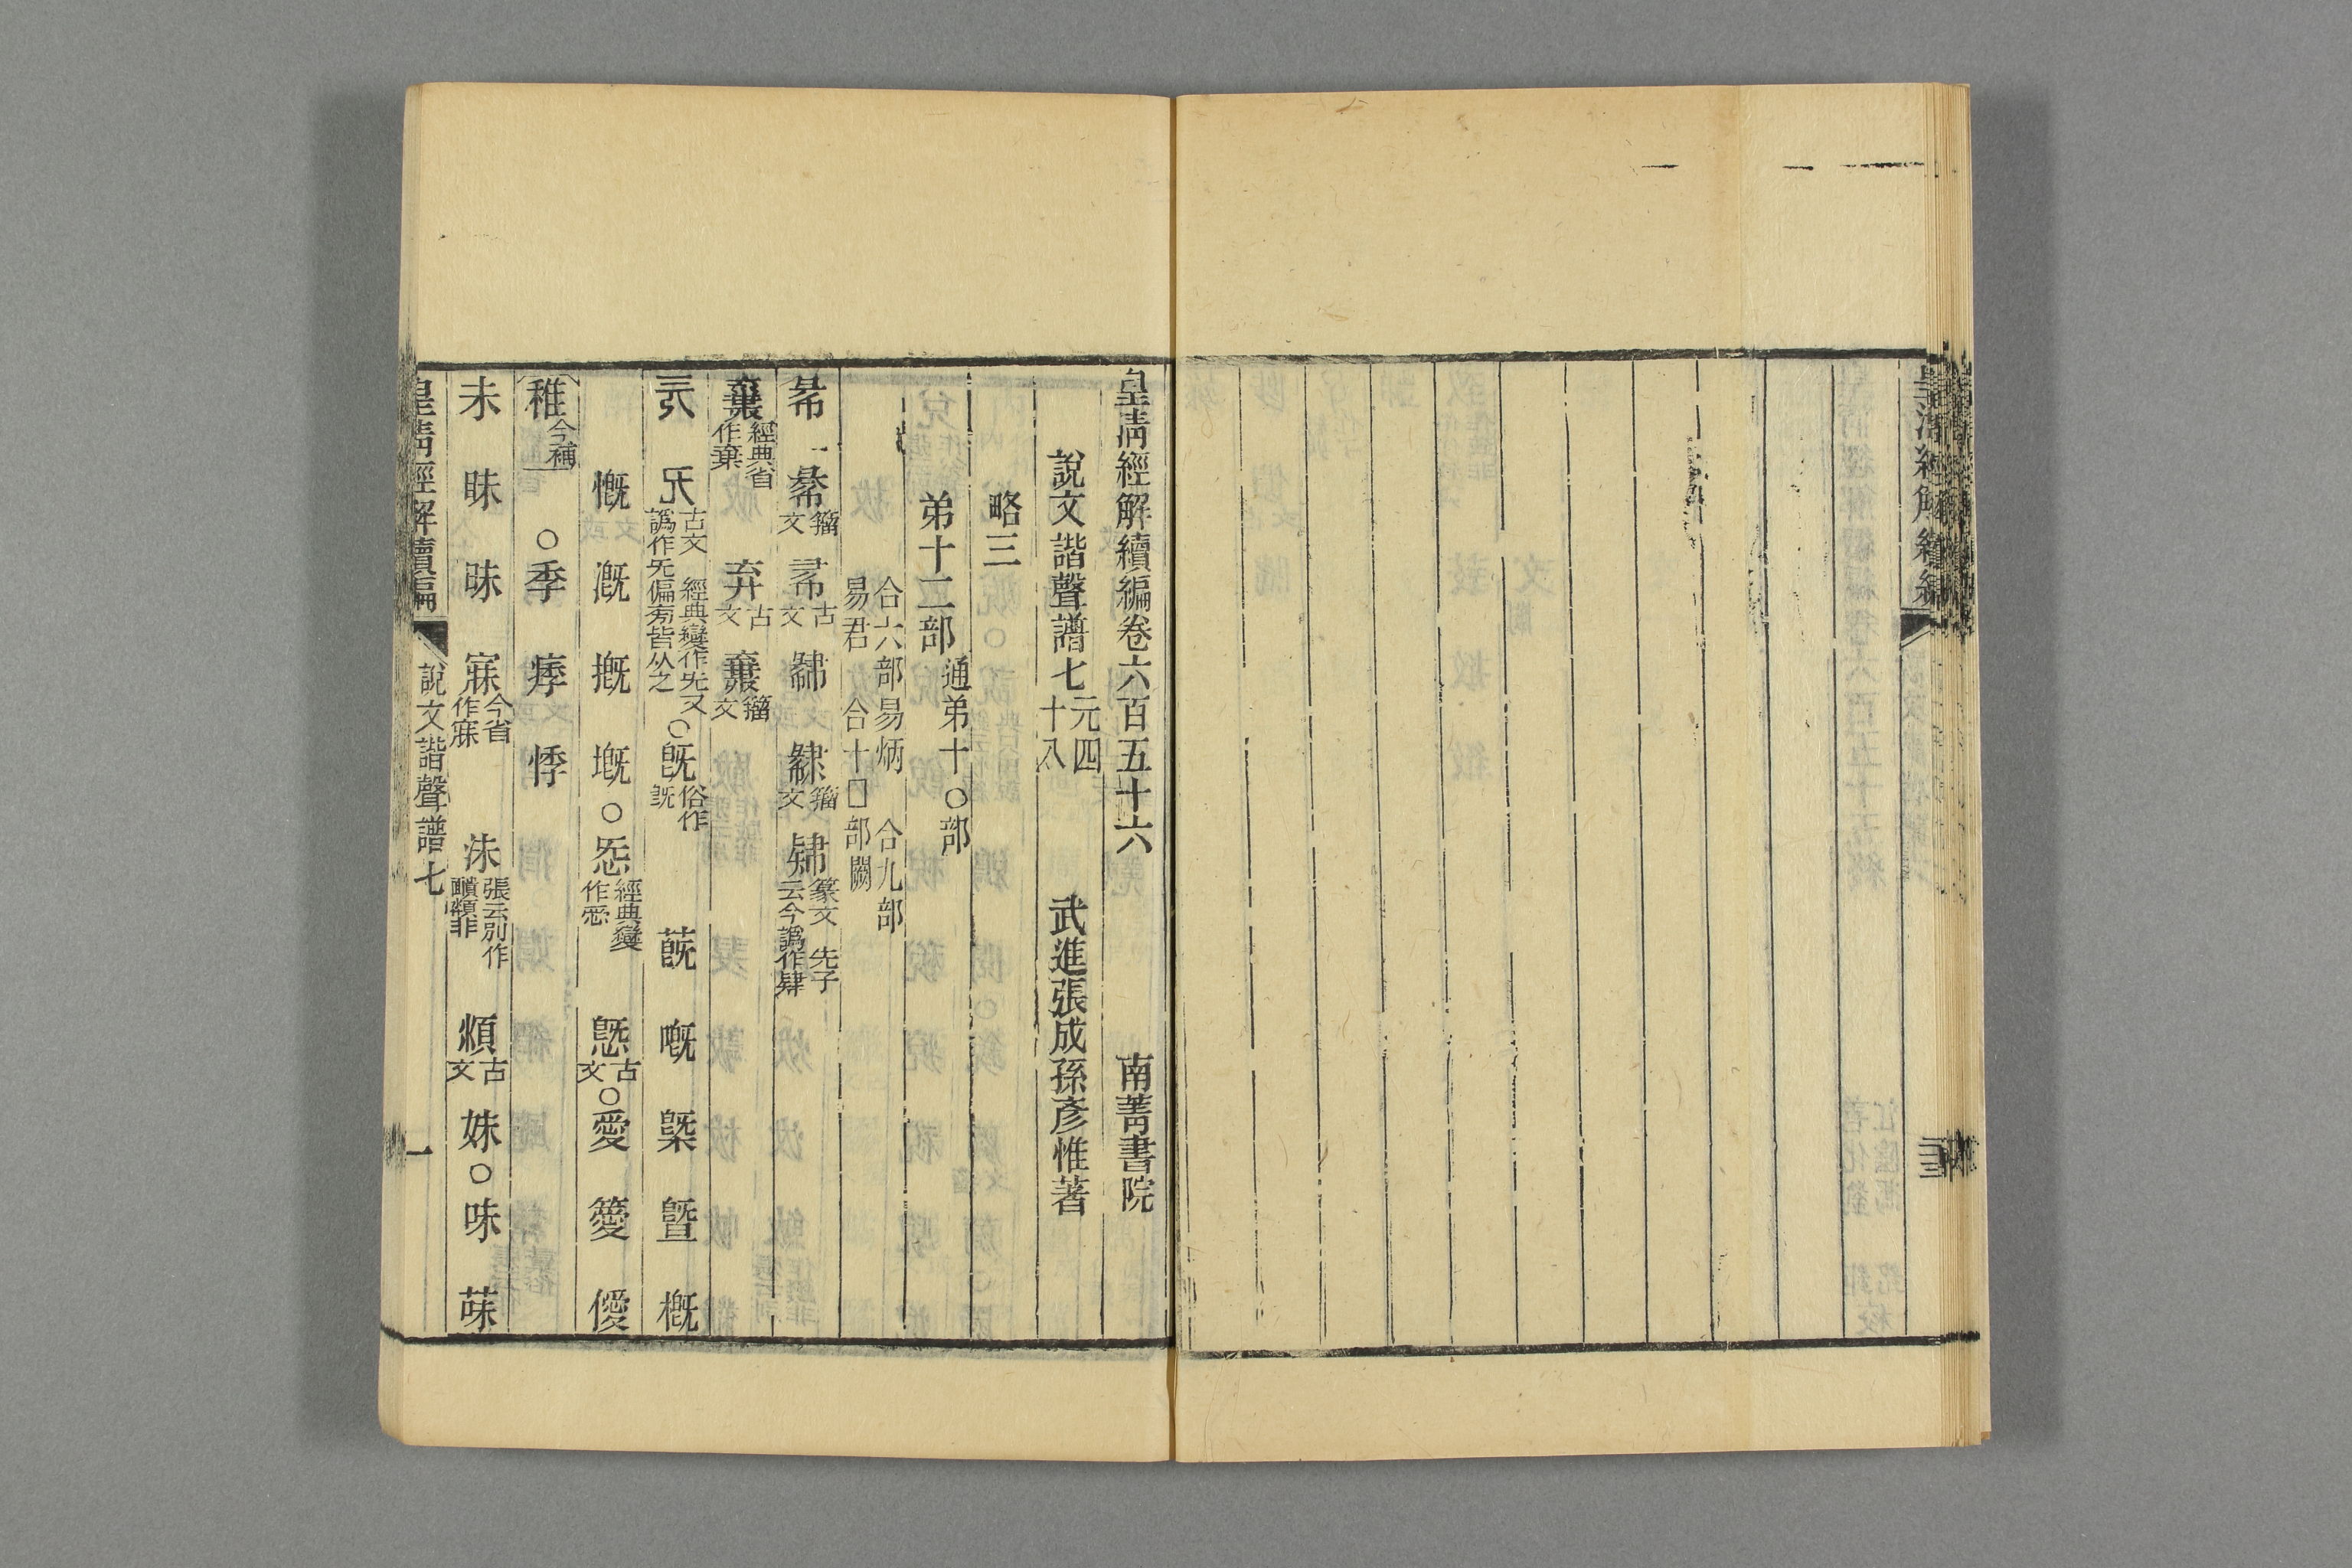 皇清經解續編卷六百五十六 南菁書院
說文諧聲譜七 元四十八 武進張成孫彥惟著
略三
弟十二部 通弟十○部
合六部易炳 合九部
易君 合十□部闕
㣇 籀文 古文 籀文 篆文 先子云今譌作肄
棄 經典省作弃 弃 古文 籀文
旡 古文 經典變作旡又譌作旡偏旁皆从之 ○旣 俗作既 蔇 嘅 槩 暨 概
慨 漑 摡 墍 ○㤅 經典變作㤅 㥣 古文 ○愛 薆 僾
稚 今補 ○季 痵 悸
未 眛 昧 寐 今省作寐 沬 張云別作靧頮非 湏 古文 妹 ○味 菋
皇清經解續編 說文諧聲譜七 一
皇清經解續編